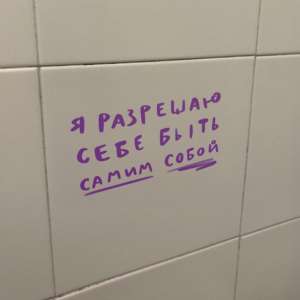 Я РАЗРЕШАЮ
СЕБЕ БЫТЬ
САМИМ СОБОЙ